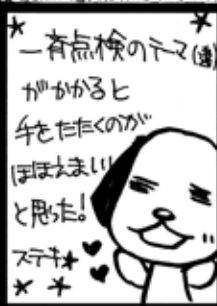 一斉点検のテーマ(違)
がかかると
手をたたくのが
ほほえましい
と思った!
ステキ